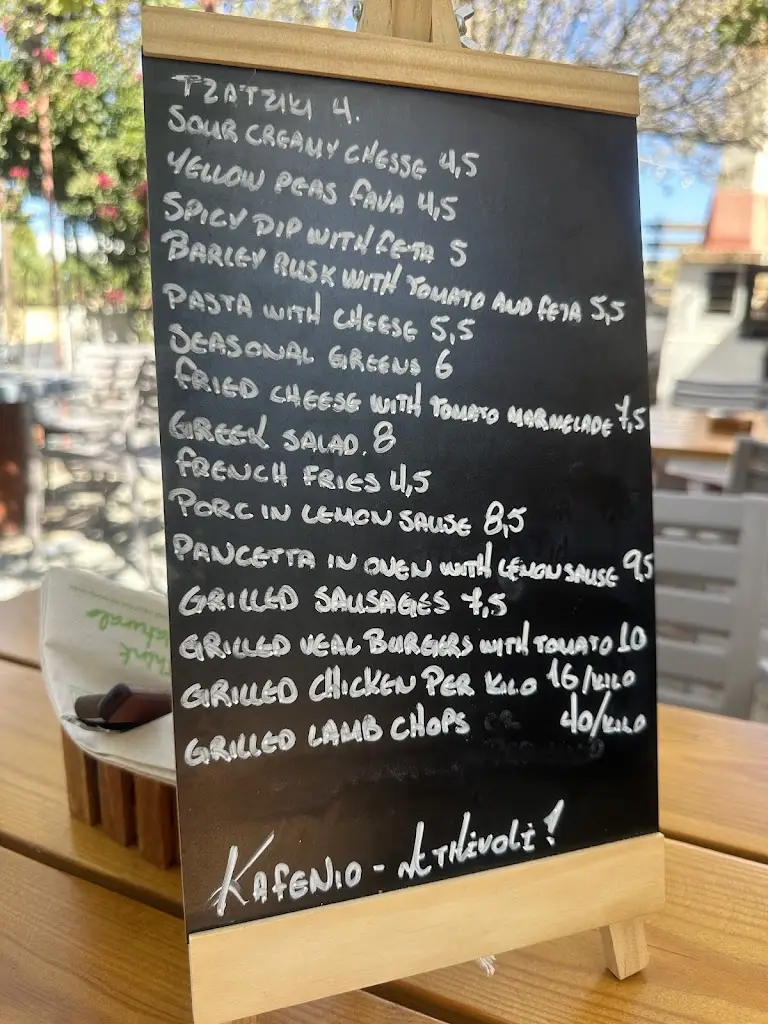 TZATZIKI 4.
SOUR CREAMY CHESSE 4,5
YELLOW PEAS FAVA 4,5
SPICY DIP WITH FETA 5
BARLEY RUSK WITH TOMATO AND FETA 5,5
PASTA WITH CHEESE 5,5
SEASONAL GREENS 6
FRIED CHEESE WITH TOMATO MARMELADE 7,5
GREEK SALAD. 8
FRENCH FRIES 4,5
PORC IN LEMON SAUSE 8,5
PANCETTA IN OVEN WITH LEMON SAUSE 9,5
GRILLED SAUSAGES 7,5
GRILLED VEAL BURGERS WITH TOMATO 10
GRILLED CHICKEN PER KILO 16/KILO
GRILLED LAMB CHOPS 40/KILO
KAFENIO - ATHIVOLI!
Think
Naturals